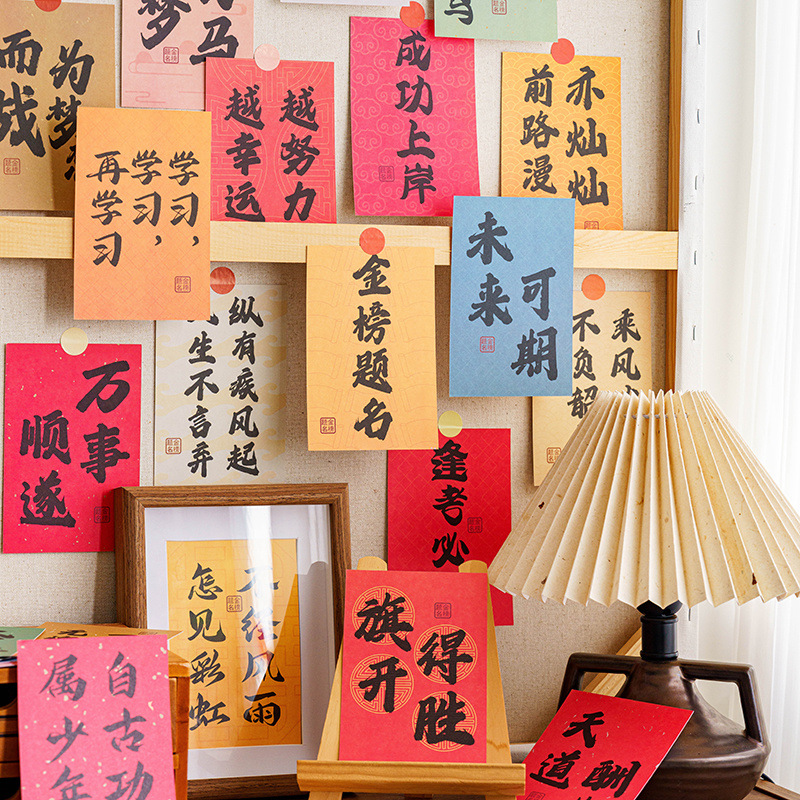 为梦
而战
马
梦
越努力
越幸运
成功上岸
马
亦灿灿
前路漫
学习，
学习，
再学习
金榜题名
未来
可期
纵有疾风起
生不言弃
乘风
不负韶
万事
顺遂
逢考必
不经风雨
怎见彩虹
旗开
得胜
自古功
属少年
天道
酬